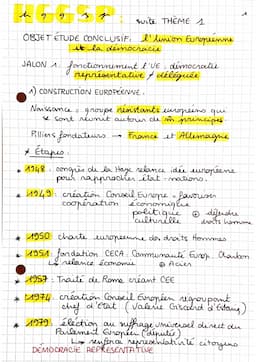 HGGSP : suite THÈME 1
OBJET ÉTUDE CONCLUSIF : l'Union Européenne
et la démocratie
JALON 1 : fonctionnement l'UE : démocratie
représentative & déléguée
1) CONSTRUCTION EUROPÉENNE.
Naissance : groupe résistants européens qui
se sont réunit autour de principes
Piliers fondateurs → France et Allemagne
* Étapes :
* 1948 : congrès de la Haye relance idée européenne
pour rapprocher état-nations.
* 1949 : création Conseil Europe → favoriser
coopération économique
politique ⊕ défendre
culturelle droits homme
* 1950 charte européenne des droits Hommes
* 1951 fondation CECA : Communauté Europ. Charbon
↳ relance économie ⊕ Acier
* 1957 : Traité de Rome créant CEE
* 1974 : création Conseil Européen regroupant
chef d'état (Valérie Giscard d'Estaing)
* 1979 : élection au suffrage universel direct du
Parlement Européen (députés)
↳ renforce représentativité citoyens
DÉMOCRATIE REPRÉSENTATIVE